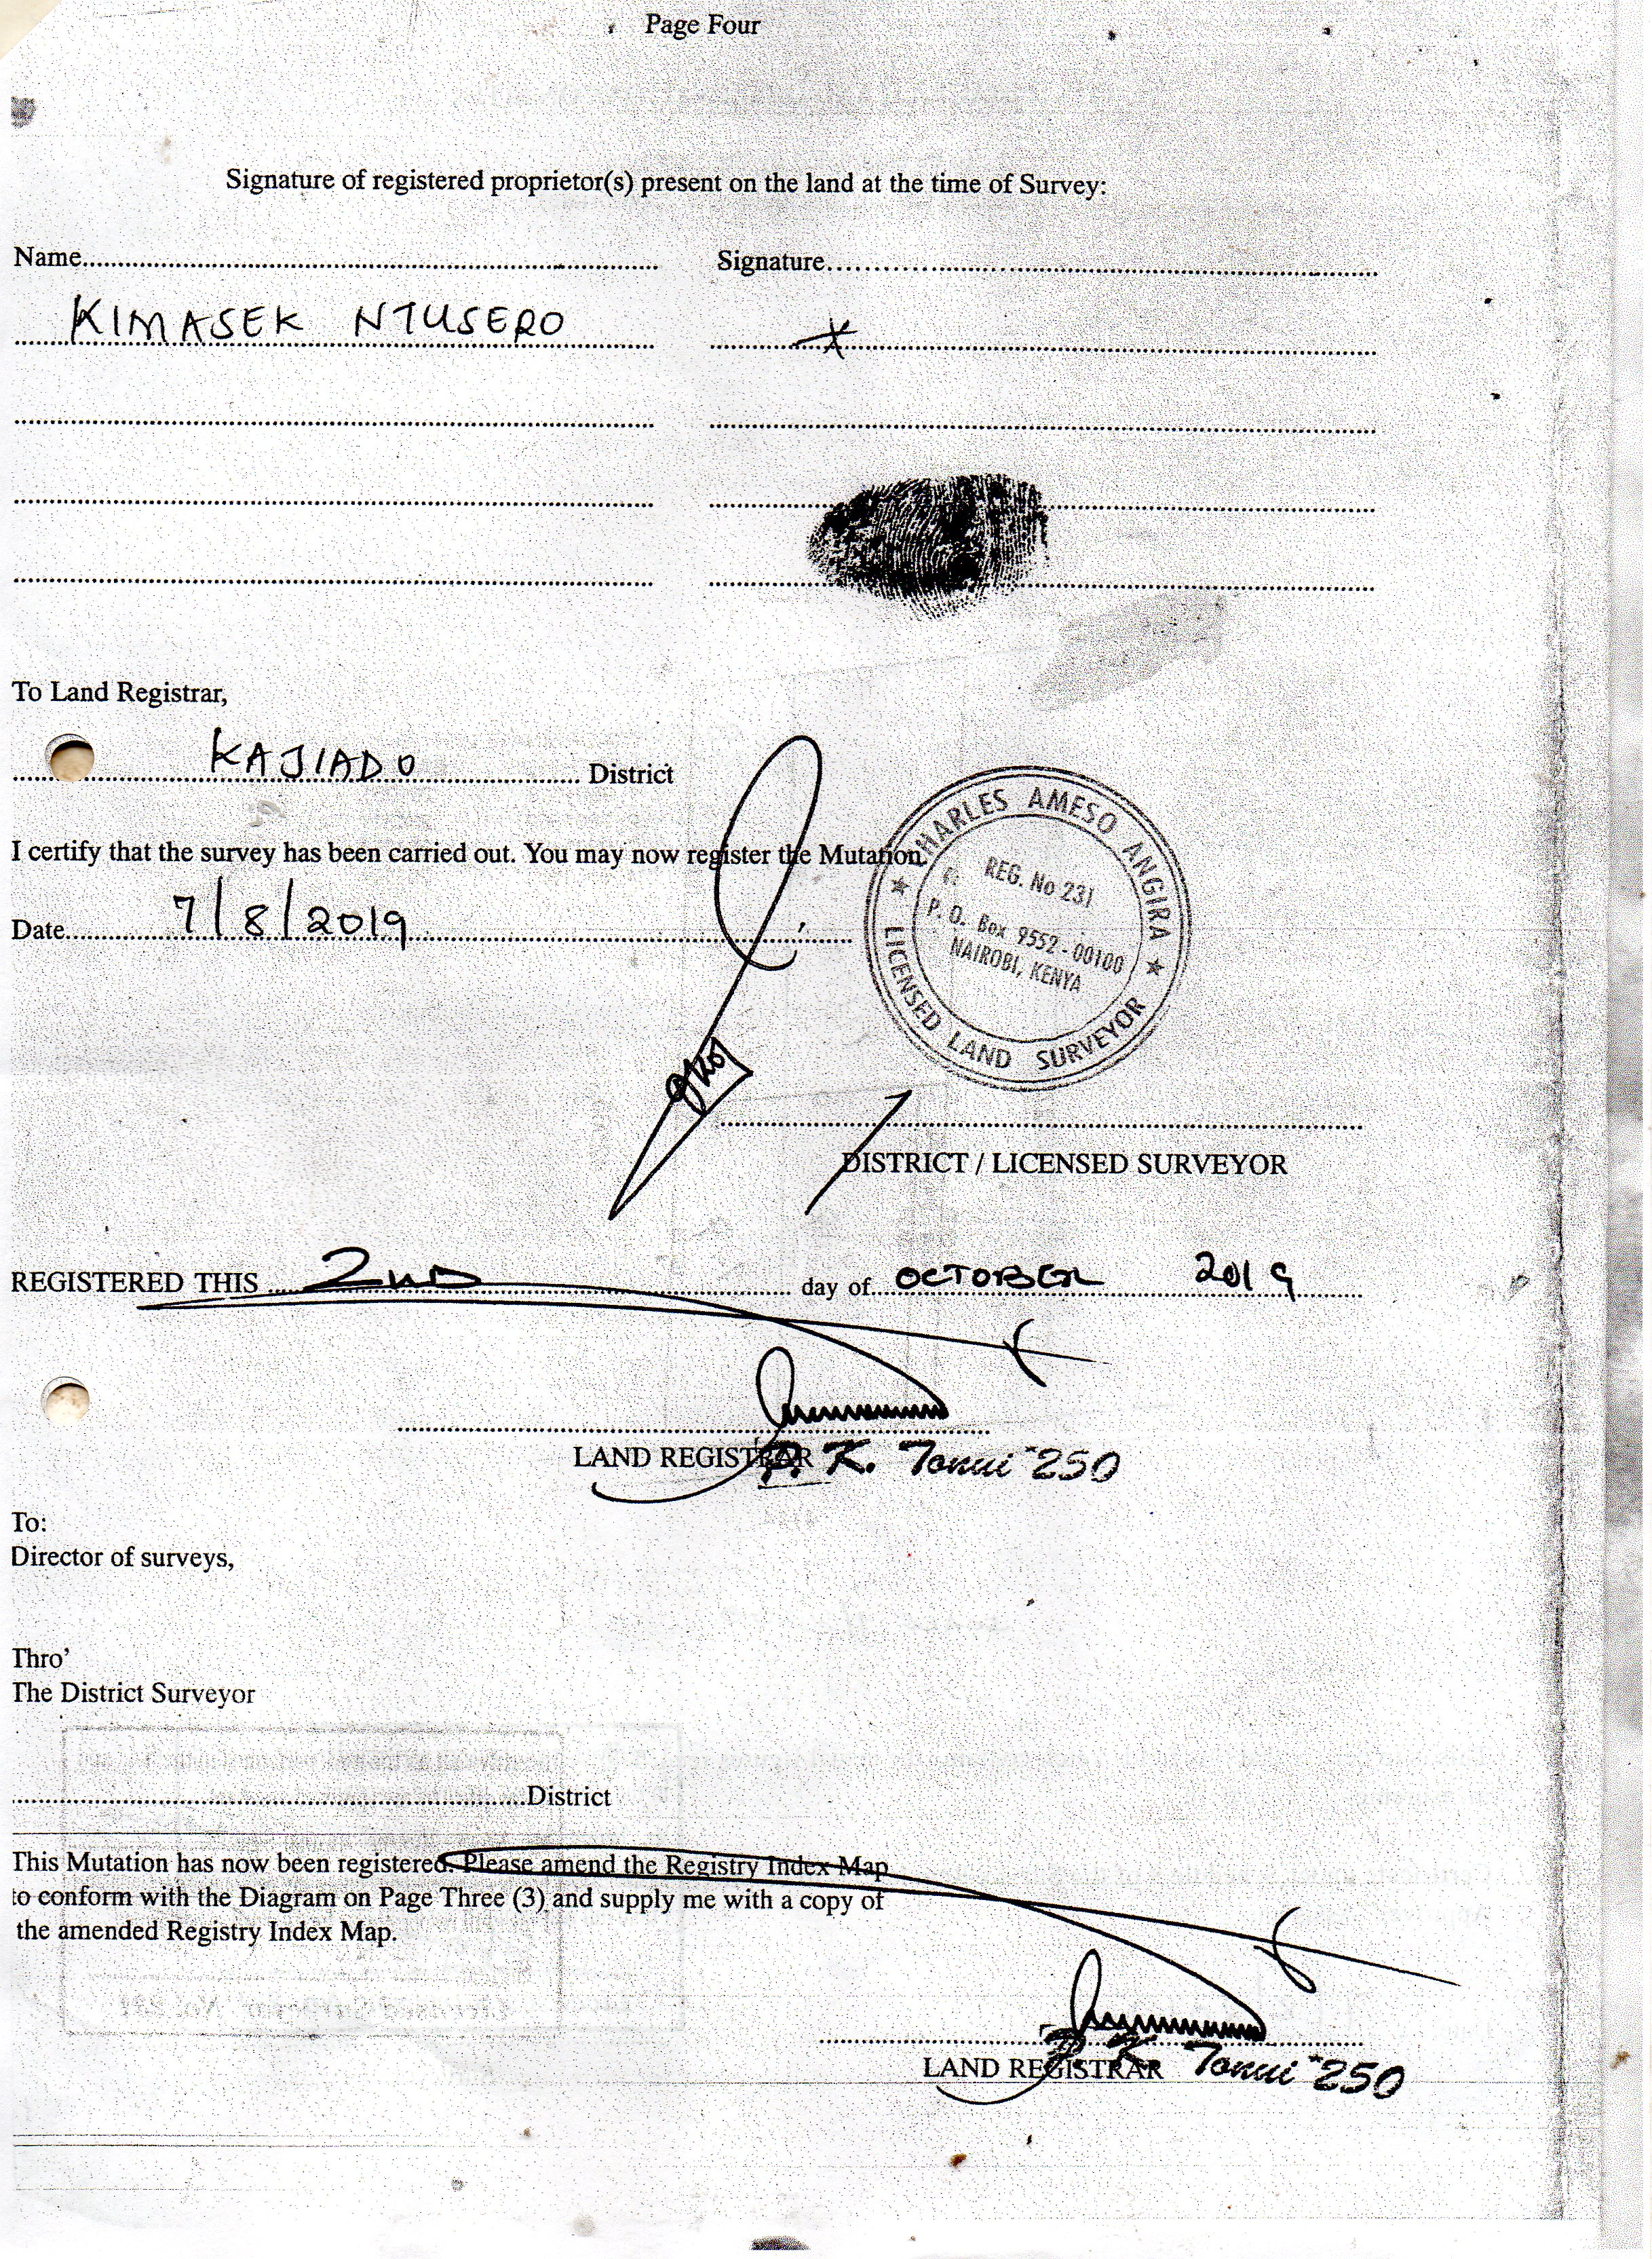 Page Four
Signature of registered proprietor(s) present on the land at the time of Survey:
Name.......... Signature..........
KIMASEK NTUSERO
To Land Registrar,
KAJIADO District
I certify that the survey has been carried out. You may now register the Mutation.
Date 7/8/2019
CHARLES AMESO ANGIRA
REG. No 231
P. O. Box 9552 - 00100
NAIROBI, KENYA
LICENSED LAND SURVEYOR
DISTRICT / LICENSED SURVEYOR
REGISTERED THIS 2ND day of OCTOBER 2019
LAND REGISTRAR
P. K. Tonui *250
To:
Director of surveys,
Thro'
The District Surveyor
..........District
This Mutation has now been registered. Please amend the Registry Index Map
to conform with the Diagram on Page Three (3) and supply me with a copy of
the amended Registry Index Map.
LAND REGISTRAR
P. K. Tonui *250